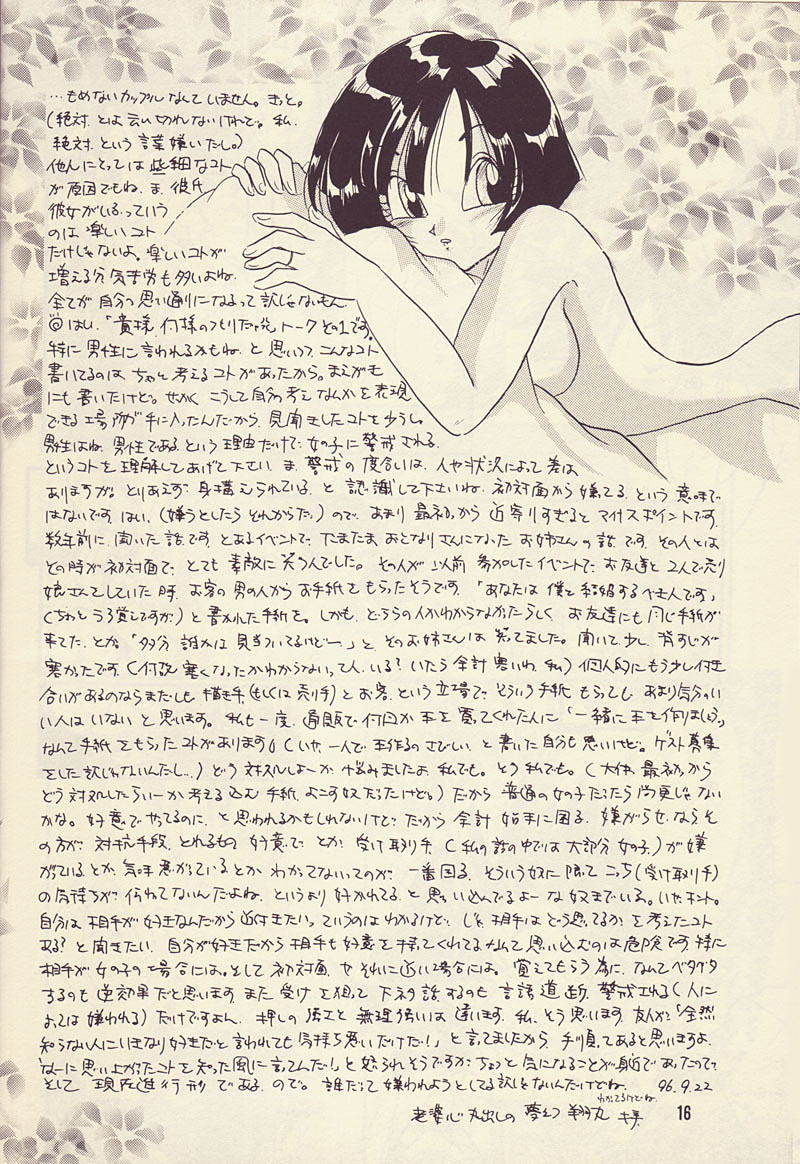 …もめないカップルなんていません。きっと。
(絶対とは云い切れないけれど。私、
絶対という言葉嫌いだし。)
他人にとっては些細なコト
が原因でもね。ま、彼氏
彼女がいるっていう
のは楽しいコト
だけじゃないよ。楽しいコトが
増える分気苦労も多いよね。
全てが自分の思い通りになるって訳じゃないもん。
はい、「貴様、何様のつもりだっ!!トークその1です。
特に男性に言われるかもね、と思いつつ、こんなコト
書いてるのはちゃんと考えるコトがあったから。まえがき
にも書いたけど。せっかくこうして自分の考えなんかを表現
できる場所が手に入ったんだから、見聞きしたコトを少し。
男性はね、男性であるという理由だけで女の子に警戒される。
というコトを理解してあげて下さい。ま、警戒の度合いは、人や状況によって差は
ありますが。とりあえず身構えられている、と認識して下さいね。初対面から嫌ってる、という意味で
はないです。はい。(嫌うとしたらそれからだ。)ので、あまり最初から近寄りすぎるとマイナスポイントです。
数年前に聞いた話です。とあるイベントで、たまたまおとなりさんになったお姉さんの話です。その人とは
その時が初対面で、とても素敵に笑う人でした。その人が以前参加したイベントでお友達と2人で売り
娘さんをしていた時、お客の男の人からお手紙をもらったそうです。「あなたは僕と結婚するべき人です」
(ちょっとうろ覚えですが)と書かれた手紙を。しかも、どちらの人かわからなかったらしく、お友達にも同じ手紙が
来てた、とか。「多分誰かは見当ついてるけどー」と、そのお姉さんは笑ってました。聞いて少し、背すじが
寒かったです。(何故寒くなったかわからないって人、いる?いたら余計悪いわ、私)個人的にもう少し付き
合いがあるのならまだしも、描き手(もしくは売り手)とお客、という立場で、そういう手紙もらっても、あまり気分のい
い人はいないと思います。私も一度、通販で何回か本を買てくれた人に「一緒に本を作りましょう」
なんて手紙をもらったコトがあります。(いや、一人で本作るのさびしい、と書いた自分も悪いけど。ゲスト募集
をした訳じゃないんだし…)どう対処しよーか悩みましたよ、私でも。そう私でも。(大体、最初っから
どう対処したらいーか考え込む手紙、よこす奴だったけど。)だから普通の女の子だったら尚更じゃない
かな。好意でやってるのに、と思われるかもしれないけど、だから余計始末に困る。嫌がらせならそ
の方が対抗手段とれるもの。好意で、とか、受け取り手(私の話の中では大部分女の子。)が嫌
がっているとか、気味悪がっているとかわかってないってのが、一番困る。そういう奴に限ってこっち(受け取り手)
の気持ちが伝わってないんだよね、というより好かれてる、と思い込んでるよーな奴までいる。いや、ホント。
自分は相手が好きなんだから近付きたい、っていうのはわかるけど、じゃ、相手はどう思ってるかを考えたコト
ある?と聞きたい。自分が好きだから相手も好意を持ってくれてるなんて思い込むのは危険です。特に
相手が女の子の場合には。そして初対面、やそれに近い場合には。覚えてもらう為に、なんてベタベタ
するのも逆効果だと思います。また受けを狙って下ネタ話するのも言語道断。警戒される(人に
よっては嫌われる)だけですよん。押しの強さと無理強いは違います。私、そう思います。友人が「全然
知らない人にいきなり好きだと言われても気持ち悪いだけだ!」と言ってましたから。手順ってあると思いますよ。
「なーに思い上がったコトを知った風に言ってんだ!」と怒られそうですが、ちょっと気になることが身近であったので。
そして現在進行形である、ので。誰だって嫌われようとしてる訳じゃないんだけどね。 96.9.22
わかってるけどね。
老婆心丸出しの
16